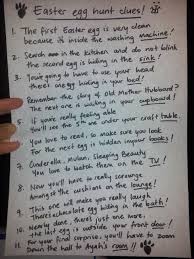 Easter egg hunt clues!
1. The first Easter egg is very clean
because it's inside the washing machine!
2. Search in the kitchen and do not blink
the second egg is hiding in the sink!
3. You're going to have to use your head
there's one egg hiding in your bed!
4. Remember the dog of Old Mother Hubbard?
The next one is waiting in your cupboard!
5. If you're really feeling able
You'll see the 5th one under your craft table.
6. You love to read, so make sure you look
For the next egg is hidden in your books!
7. Cinderella, Mulan, Sleeping Beauty
You love to watch them on the TV!
8. Now you'll have to really scrounge
Amongst the cushions on the lounge!
9. This one will make you really laugh
There's a chocolate egg hiding in the bath!
10. Nearly done, there's just one more,
the last egg is outside your front door!
11. For your final surprise, you'll have to zoom
Down the hall to Ayah's room!!